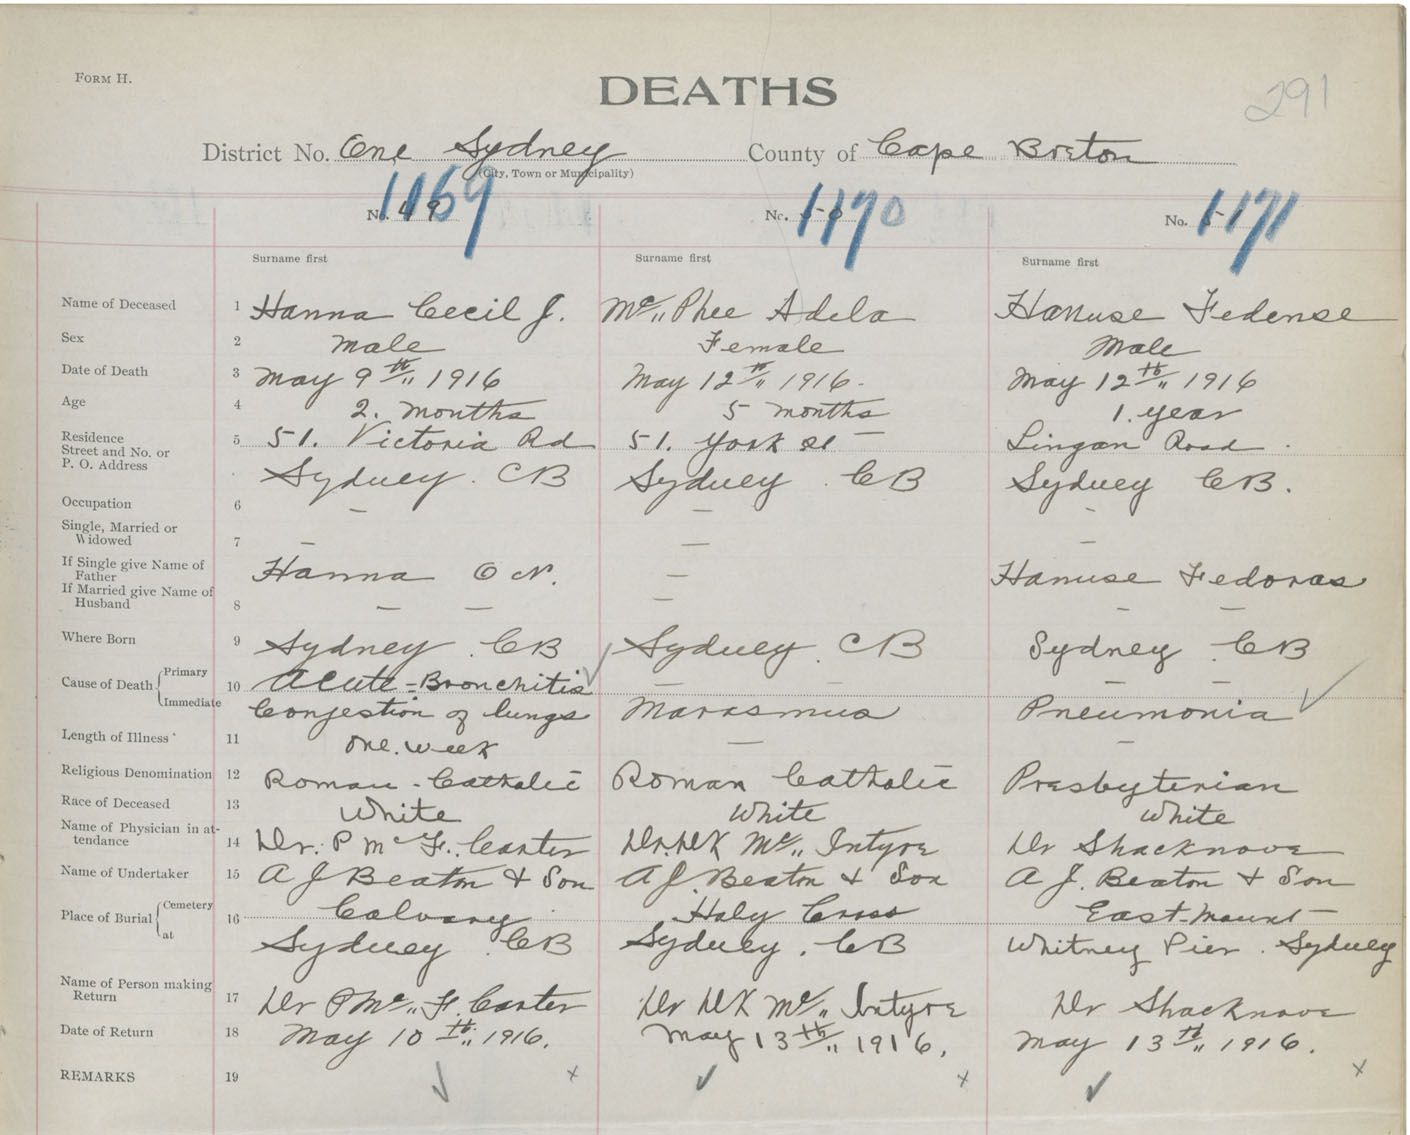 FORM H.
DEATHS
291
District No. One Sydney County of Cape Breton
(City, Town or Municipality)
No. 49 1169 No. 50 1170 No. 51 1171
Surname first Surname first Surname first
Name of Deceased 1 Hanna Cecil J. Mc„ Phee Adela Hanuse Fedense
Sex 2 Male Female Male
Date of Death 3 May 9th„ 1916 May 12th„ 1916. May 12th„ 1916
Age 4 2. months 5 months 1. year
Residence Street and No. or P. O. Address 5 51. Victoria Rd 51. York St – Lingan Road .
Sydney. CB Sydney. CB Sydney CB.
Occupation 6 – – –
Single, Married or Widowed 7 – – –
If Single give Name of Father Hanna O N. – Hanuse Fedoras
If Married give Name of Husband 8 – – – – –
Where Born 9 Sydney. CB Sydney. CB Sydney CB
Cause of Death Primary 10 Acute-Bronchitis – – – –
Immediate Congestion of lungs Marasmus Pneumonia
Length of Illness 11 One. week – –
Religious Denomination 12 Roman-Catholic Roman Catholic Presbyterian
Race of Deceased 13 White White White
Name of Physician in attendance 14 Dr. P Mc F. Carter Dr. DK Mc„ Intyre Dr Shacknove
Name of Undertaker 15 A J Beaton & Son A J. Beaton & Son A J. Beaton & Son
Place of Burial Cemetery 16 Calvary Holy Cross East-Mount
at Sydney. CB Sydney. CB Whitney Pier. Sydney
Name of Person making Return 17 Dr P Mc„ F. Carter Dr DK Mc„ Intyre Dr Shacknove
Date of Return 18 May 10th„ 1916. May 13th„ 1916. May 13th„ 1916.
REMARKS 19